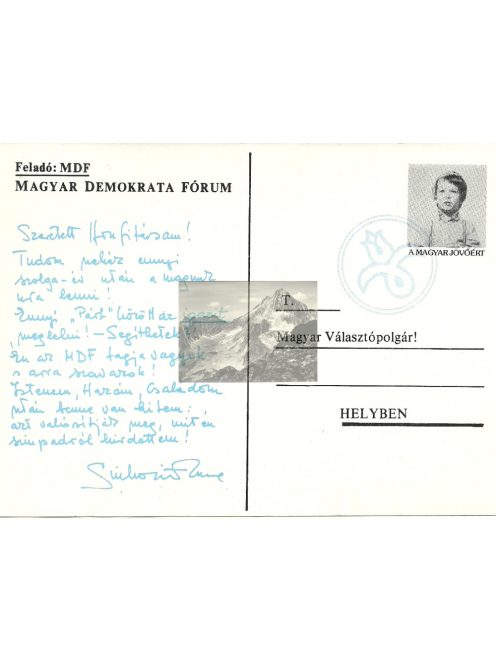 Feladó: MDF
MAGYAR DEMOKRATA FÓRUM
Szeretett Honfitársam!
Tudom nehéz ennyi
szolga-év után a magunk
ura lenni!
Ennyi „Párt” között az igazit
meglelni! – Segíthetek?
Én az MDF tagja vagyok –
s arra szavazok!
Istenem, Hazám, Családom
után benne van hitem:
azt valósítják meg, mit én
színpadról hirdettem!
Sinkovits Imre
A MAGYAR JÖVŐÉRT
T.
Magyar Választópolgár!
HELYBEN